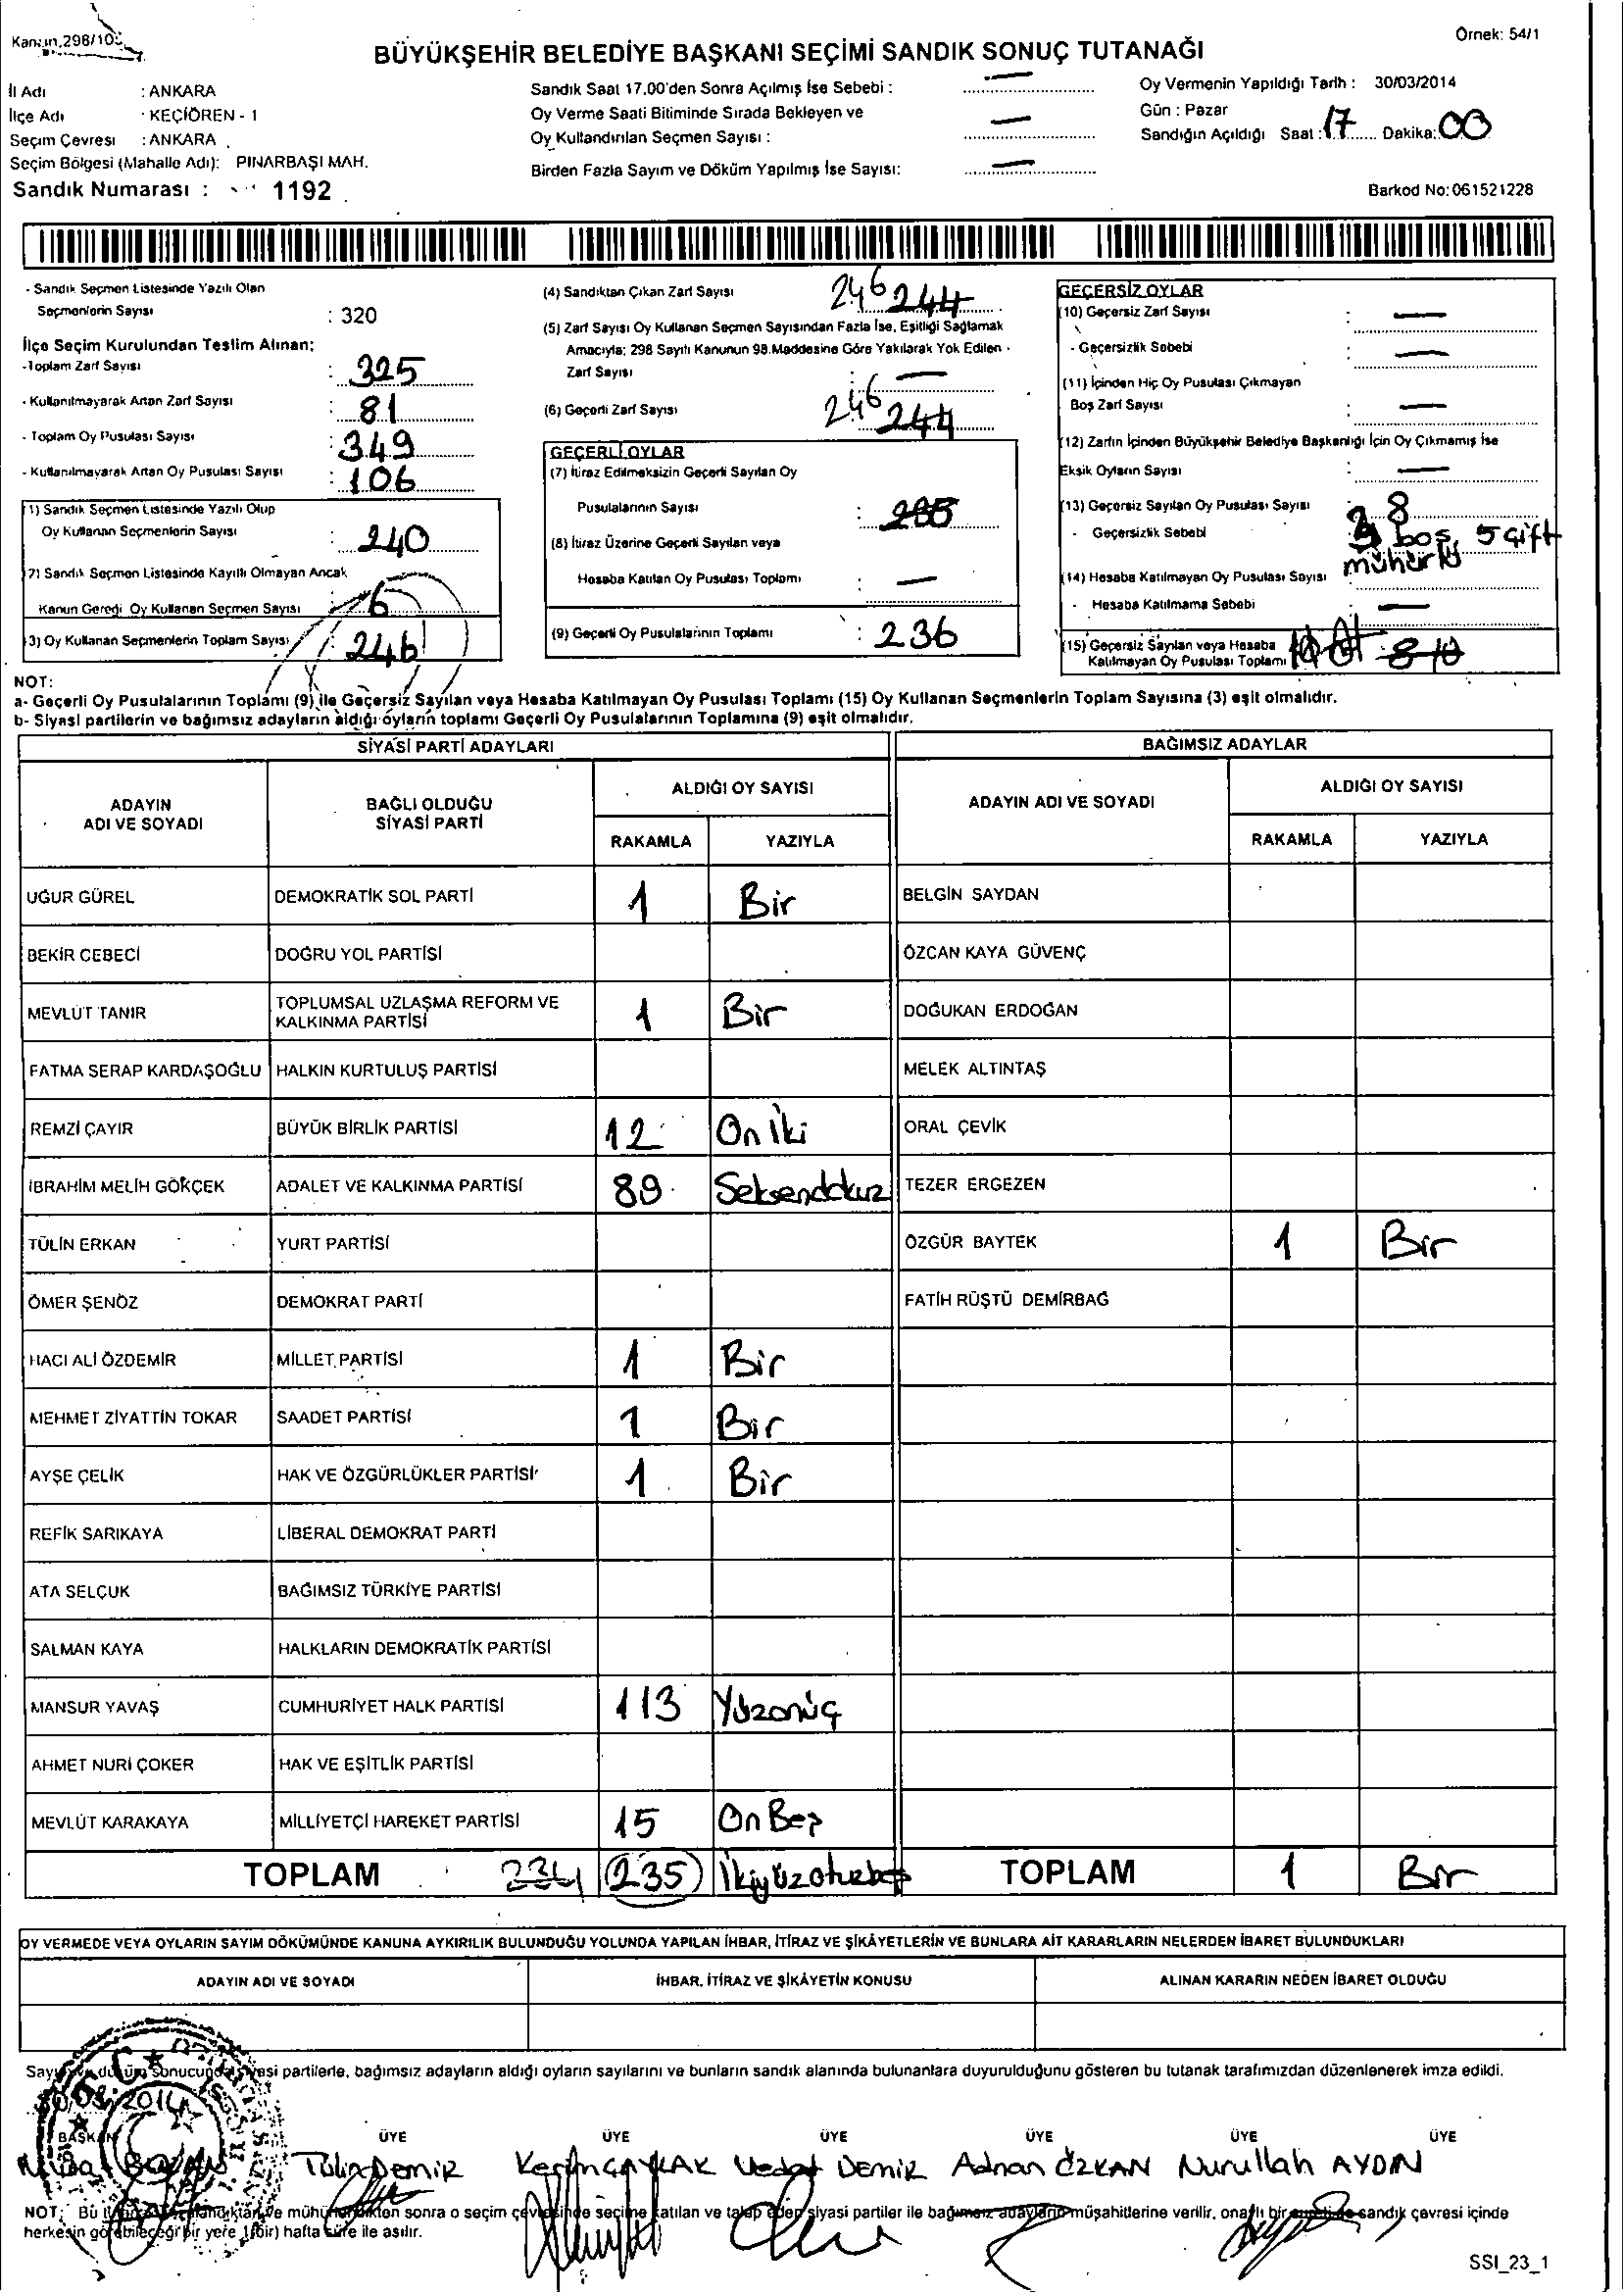 Örnek: 54/1
BÜYÜKŞEHİR BELEDİYE BAŞKANI SEÇİMİ SANDIK SONUÇ TUTANAĞI
İl Adı : ANKARA
İlçe Adı : KEÇİÖREN - 1
Seçim Çevresi : ANKARA
Seçim Bölgesi (Mahalle Adı): PINARBAŞI MAH.
Sandık Numarası : 1192
Sandık Saat 17.00'den Sonra Açılmış İse Sebebi : —
Oy Verme Saati Bitiminde Sırada Bekleyen ve
Oy Kullandırılan Seçmen Sayısı : —
Birden Fazla Sayım ve Döküm Yapılmış İse Sayısı: —
Oy Vermenin Yapıldığı Tarih : 30/03/2014
Gün : Pazar
Sandığın Açıldığı Saat : 17 Dakika: 00
Barkod No: 061521228
- Sandık Seçmen Listesinde Yazılı Olan
Seçmenlerin Sayısı : 320
İlçe Seçim Kurulundan Teslim Alınan;
- Toplam Zarf Sayısı : 325
- Kullanılmayarak Artan Zarf Sayısı : 81
- Toplam Oy Pusulası Sayısı : 349
- Kullanılmayarak Artan Oy Pusulası Sayısı : 106
(1) Sandık Seçmen Listesinde Yazılı Olup
Oy Kullanan Seçmenlerin Sayısı : 240
(2) Sandık Seçmen Listesinde Kayıtlı Olmayan Ancak
Kanun Gereği Oy Kullanan Seçmen Sayısı : 6
(3) Oy Kullanan Seçmenlerin Toplam Sayısı : 246
(4) Sandıktan Çıkan Zarf Sayısı 246 244
(5) Zarf Sayısı Oy Kullanan Seçmen Sayısından Fazla İse, Eşitliği Sağlamak
Amacıyla; 298 Sayılı Kanunun 98.Maddesine Göre Yakılarak Yok Edilen
Zarf Sayısı : —
(6) Geçerli Zarf Sayısı 246 244
GEÇERLİ OYLAR
(7) İtiraz Edilmeksizin Geçerli Sayılan Oy
Pusulalarının Sayısı :
(8) İtiraz Üzerine Geçerli Sayılan veya
Hesaba Katılan Oy Pusulası Toplamı : —
(9) Geçerli Oy Pusulalarının Toplamı : 236
GEÇERSİZ OYLAR
(10) Geçersiz Zarf Sayısı : —
- Geçersizlik Sebebi : —
(11) İçinden Hiç Oy Pusulası Çıkmayan
Boş Zarf Sayısı : —
(12) Zarfın İçinden Büyükşehir Belediye Başkanlığı İçin Oy Çıkmamış İse
Eksik Oyların Sayısı : —
(13) Geçersiz Sayılan Oy Pusulası Sayısı : 8
- Geçersizlik Sebebi : boş, 5 çift
mühürlü
(14) Hesaba Katılmayan Oy Pusulası Sayısı
- Hesaba Katılmama Sebebi : —
(15) Geçersiz Sayılan veya Hesaba
Katılmayan Oy Pusulası Toplamı
NOT:
a- Geçerli Oy Pusulalarının Toplamı (9) ile Geçersiz Sayılan veya Hesaba Katılmayan Oy Pusulası Toplamı (15) Oy Kullanan Seçmenlerin Toplam Sayısına (3) eşit olmalıdır.
b- Siyasi partilerin ve bağımsız adayların aldığı oyların toplamı Geçerli Oy Pusulalarının Toplamına (9) eşit olmalıdır.
SİYASİ PARTİ ADAYLARI BAĞIMSIZ ADAYLAR
ADAYIN ADI VE SOYADI BAĞLI OLDUĞU SİYASİ PARTİ ALDIĞI OY SAYISI ADAYIN ADI VE SOYADI ALDIĞI OY SAYISI
RAKAMLA YAZIYLA RAKAMLA YAZIYLA
UĞUR GÜREL DEMOKRATİK SOL PARTİ 1 Bir BELGİN SAYDAN
BEKİR CEBECİ DOĞRU YOL PARTİSİ ÖZCAN KAYA GÜVENÇ
MEVLÜT TANIR TOPLUMSAL UZLAŞMA REFORM VE KALKINMA PARTİSİ 1 Bir DOĞUKAN ERDOĞAN
FATMA SERAP KARDAŞOĞLU HALKIN KURTULUŞ PARTİSİ MELEK ALTINTAŞ
REMZİ ÇAYIR BÜYÜK BİRLİK PARTİSİ 12 On İki ORAL ÇEVİK
İBRAHİM MELİH GÖKÇEK ADALET VE KALKINMA PARTİSİ 89 Seksendokuz TEZER ERGEZEN
TÜLİN ERKAN YURT PARTİSİ ÖZGÜR BAYTEK 1 Bir
ÖMER ŞENÖZ DEMOKRAT PARTİ FATİH RÜŞTÜ DEMİRBAĞ
HACI ALİ ÖZDEMİR MİLLET PARTİSİ 1 Bir
MEHMET ZİYATTİN TOKAR SAADET PARTİSİ 1 Bir
AYŞE ÇELİK HAK VE ÖZGÜRLÜKLER PARTİSİ 1 Bir
REFİK SARIKAYA LİBERAL DEMOKRAT PARTİ
ATA SELÇUK BAĞIMSIZ TÜRKİYE PARTİSİ
SALMAN KAYA HALKLARIN DEMOKRATİK PARTİSİ
MANSUR YAVAŞ CUMHURİYET HALK PARTİSİ 113 Yüzonüç
AHMET NURİ ÇOKER HAK VE EŞİTLİK PARTİSİ
MEVLÜT KARAKAYA MİLLİYETÇİ HAREKET PARTİSİ 15 On Beş
TOPLAM 234 235 İkiyüzotuzbeş TOPLAM 1 Bir
OY VERMEDE VEYA OYLARIN SAYIM DÖKÜMÜNDE KANUNA AYKIRILIK BULUNDUĞU YOLUNDA YAPILAN İHBAR, İTİRAZ VE ŞİKÂYETLERİN VE BUNLARA AİT KARARLARIN NELERDEN İBARET BULUNDUKLARI
ADAYIN ADI VE SOYADI İHBAR, İTİRAZ VE ŞİKÂYETİN KONUSU ALINAN KARARIN NEDEN İBARET OLDUĞU
partilerle, bağımsız adayların aldığı oyların sayılarını ve bunların sandık alanında bulunanlara duyurulduğunu gösteren bu tutanak tarafımızdan düzenlenerek imza edildi.
2014
BAŞKAN ÜYE ÜYE ÜYE ÜYE ÜYE ÜYE
Tülin Demir Vedat Demir Adnan ÖZKAN Nurullah AYDIN
NOT: Bu sonra o seçim çevresinde seçime katılan ve talep eden siyasi partiler ile bağımsız adayların müşahitlerine verilir, onaylı bir sandık çevresi içinde
herkesin görebileceği bir yere 1(bir) hafta süre ile asılır.
SSI_23_1